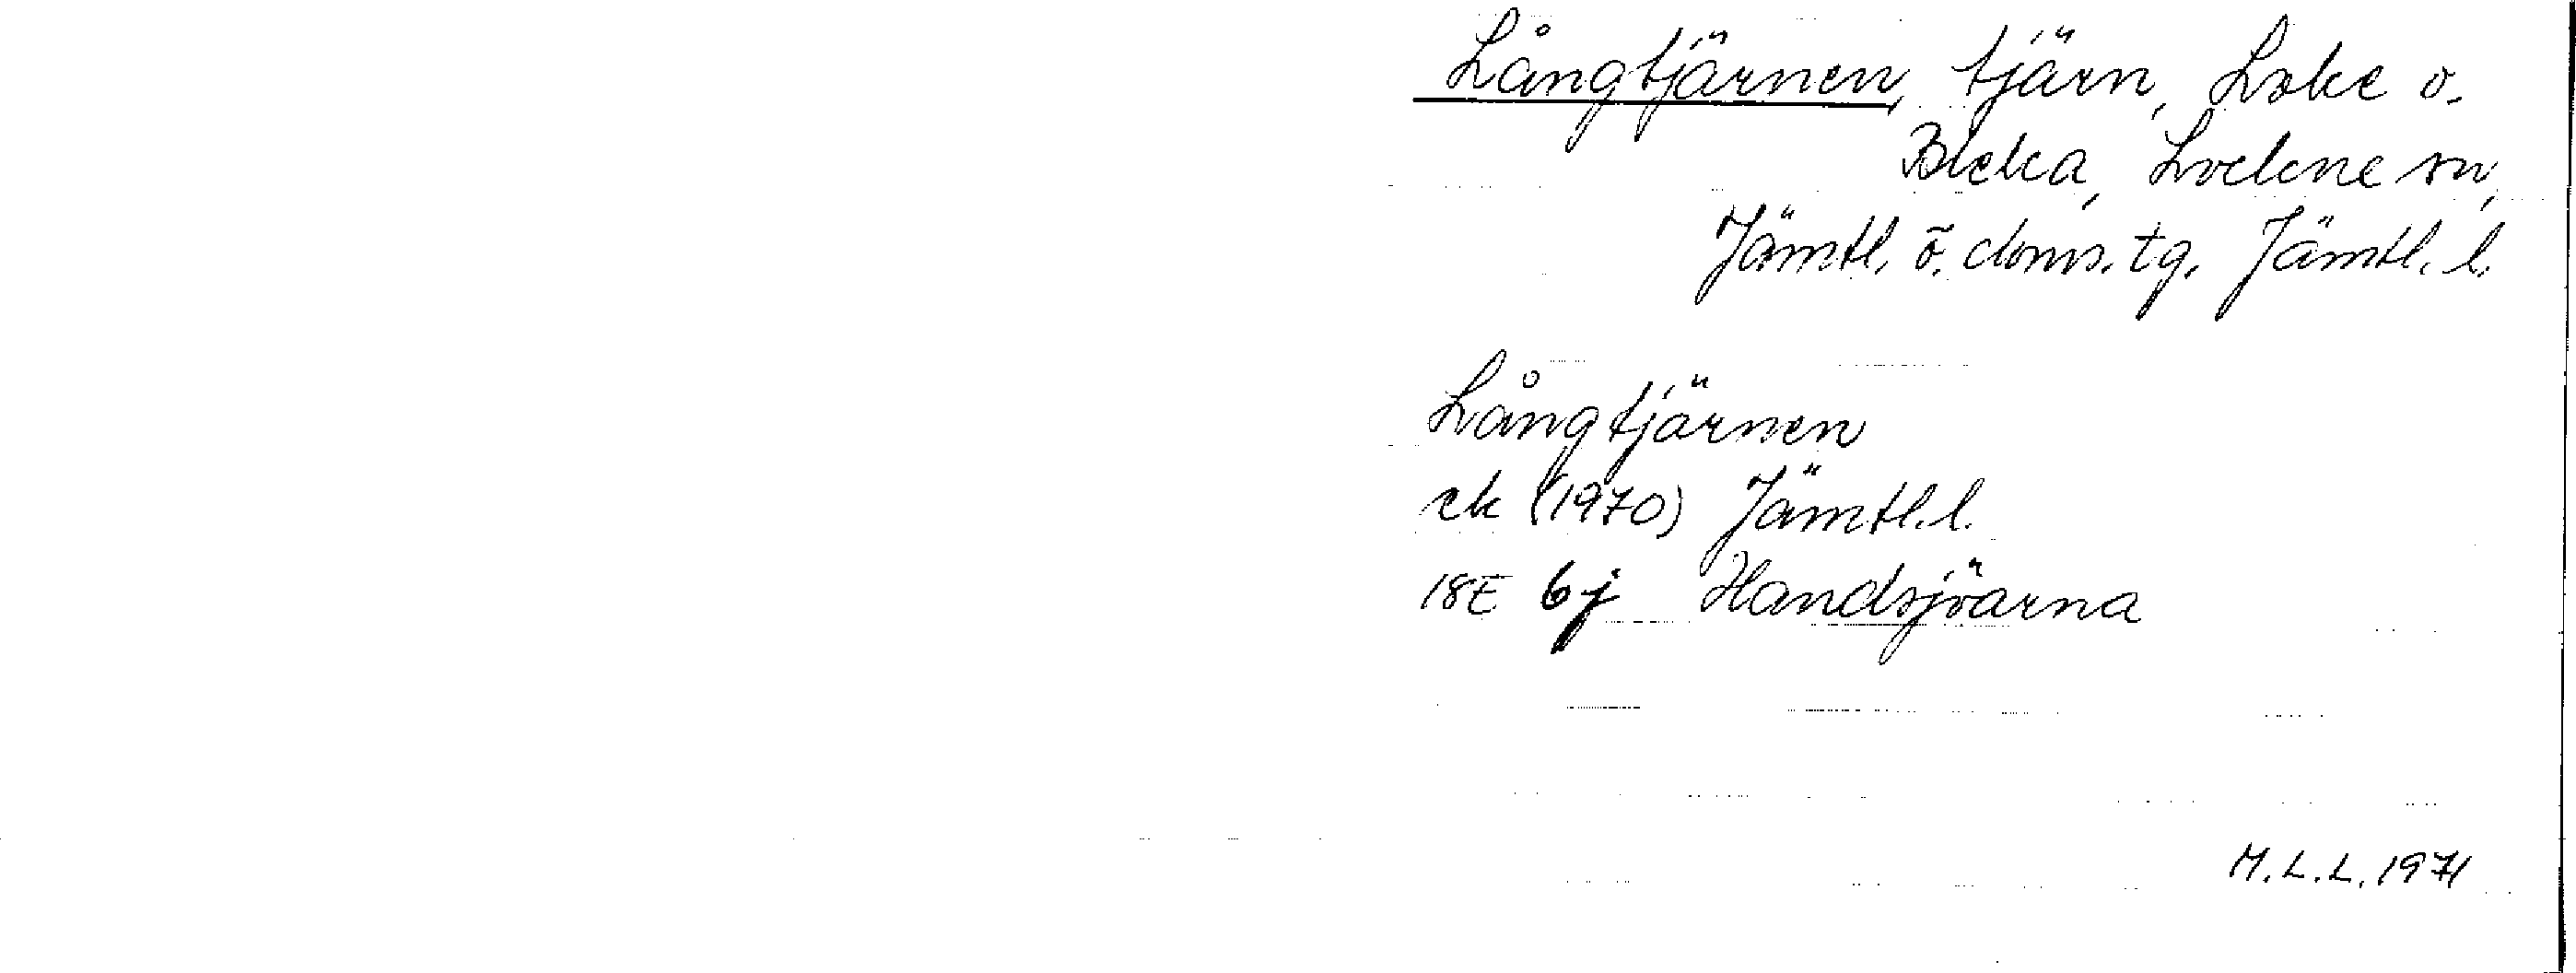 Långtjärnen, tjärn, Loke o.
Bleka, Lockne sn,
Jämtl. ö. doms. tg. Jämtl. l.
Långtjärnen
ek (1970) Jämtl. l.
18E 6j Handsjöarna
M.L.L. 1971